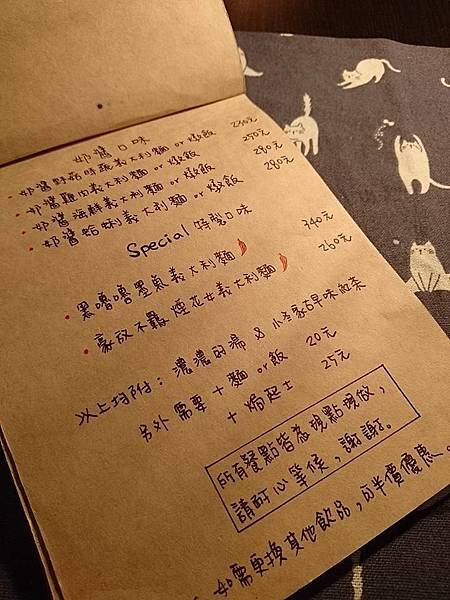 奶醬口味
奶醬野菇時蔬義大利麵 or 燉飯 230元
奶醬雞肉義大利麵 or 燉飯 250元
奶醬海鮮義大利麵 or 燉飯 290元
奶醬蛤蜊義大利麵 or 燉飯 280元
Special 特製口味
黑嚕嚕墨魚義大利麵 340元
豪放不羈煙花女義大利麵 260元
以上均附：濃濃的湯 & 小冬家古早味泡菜
另外需要 + 麵 or 飯 20元
+ 焗起士 25元
所有餐點皆為現點現做，
請耐心等候，謝謝。
如需更換其他飲品，享半價優惠。